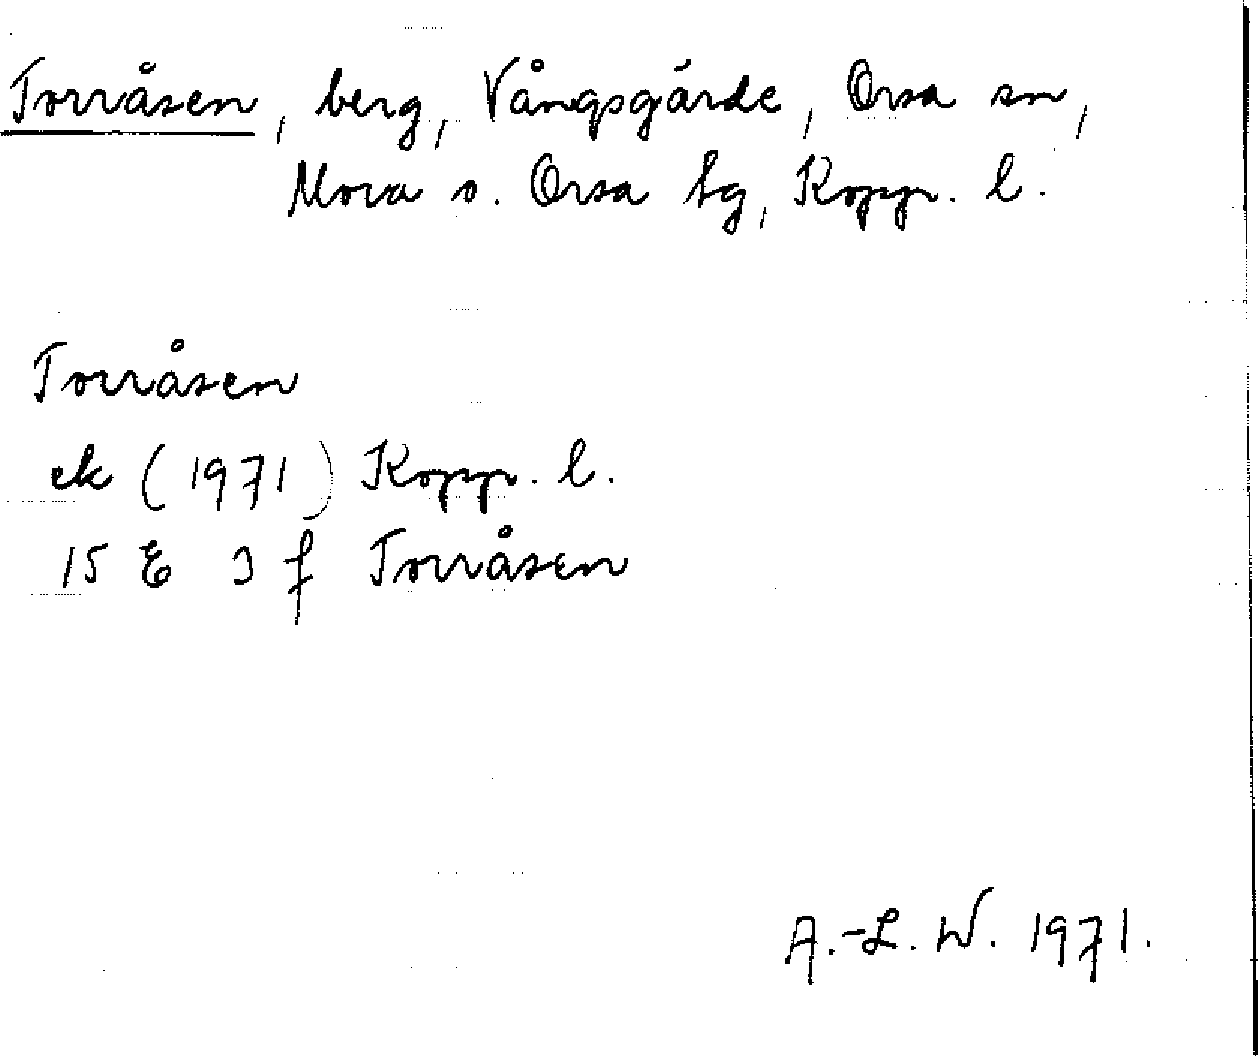 Torråsen, berg, Vångsgärde, Orsa sn,
Mora o. Orsa tg, Kopp. l.
Torråsen
ek (1971) Kopp. l.
15 E 3 f Torråsen
A.-L. W. 1971.